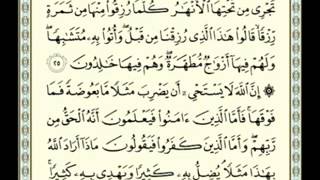 تَجْرِى مِن تَحْتِهَا ٱلْأَنْهَٰرُ كُلَّمَا رُزِقُوا۟ مِنْهَا مِن ثَمَرَةٍ
رِّزْقًا قَالُوا۟ هَٰذَا ٱلَّذِى رُزِقْنَا مِن قَبْلُ وَأُتُوا۟ بِهِۦ مُتَشَٰبِهًا
وَلَهُمْ فِيهَآ أَزْوَٰجٌ مُّطَهَّرَةٌ وَهُمْ فِيهَا خَٰلِدُونَ ٢٥
۞ إِنَّ ٱللَّهَ لَا يَسْتَحْىِۦٓ أَن يَضْرِبَ مَثَلًا مَّا بَعُوضَةً فَمَا
فَوْقَهَا فَأَمَّا ٱلَّذِينَ ءَامَنُوا۟ فَيَعْلَمُونَ أَنَّهُ ٱلْحَقُّ مِن
رَّبِّهِمْ وَأَمَّا ٱلَّذِينَ كَفَرُوا۟ فَيَقُولُونَ مَاذَآ أَرَادَ ٱللَّهُ
بِهَٰذَا مَثَلًا يُضِلُّ بِهِۦ كَثِيرًا وَيَهْدِى بِهِۦ كَثِيرًا